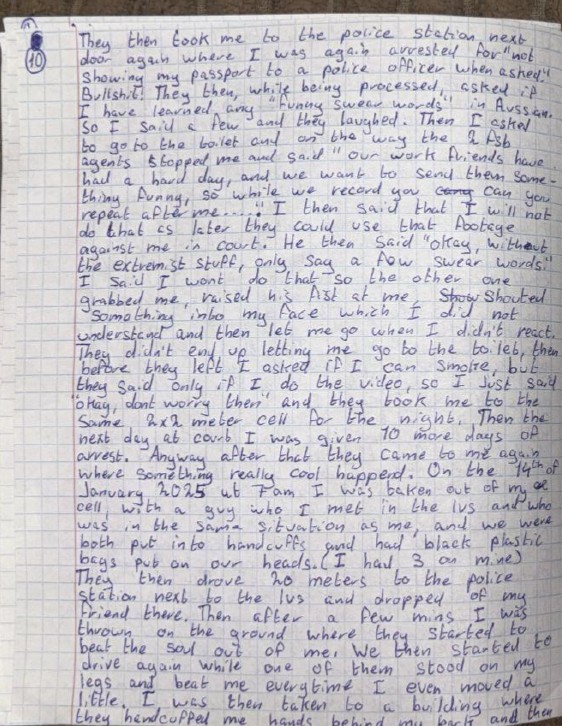 10
They then took me to the police station next
door again where I was again arrested for "not
showing my passport to a police officer when asked."
Bullshit! They then, while being processed, asked if
I have learned any "funny swear words" in Russian.
So I said a few and they laughed. Then I asked
to go to the toilet and on the way the 2 fsb
agents stopped me and said "our work friends have
had a hard day, and we want to send them some-
thing funny, so while we record you can you
repeat after me....." I then said that I will not
do that as later they could use that footage
against me in court. He then said "okay, without
the extremist stuff, only say a few swear words."
I said I wont do that so the other one
grabbed me, raised his fist at me, shouted
something into my face which I did not
understand and then let me go when I didn't react.
They didn't end up letting me go to the toilet, then
before they left I asked if I can smoke, but
they said only if I do the video, so I just said
"okay, dont worry then" and they took me to the
same 2x2 meter cell for the night. Then the
next day at court I was given 10 more days of
arrest. Anyway after that they came to me again
where something really cool happend. On the 14th of
January 2025 at 7am I was taken out of my
cell, with a guy who I met in the lvs and who
was in the same situation as me, and we were
both put into handcuffs and had black plastic
bags put on our heads. (I had 3 on mine)
They then drove 20 meters to the police
station next to the lvs and dropped of my
friend there. Then after a few mins I was
thrown on the ground where they started to
beat the soul out of me. We then started to
drive again while one of them stood on my
legs and beat me everytime I even moved a
little. I was then taken to a building where
they handcuffed me hands behind my back and then